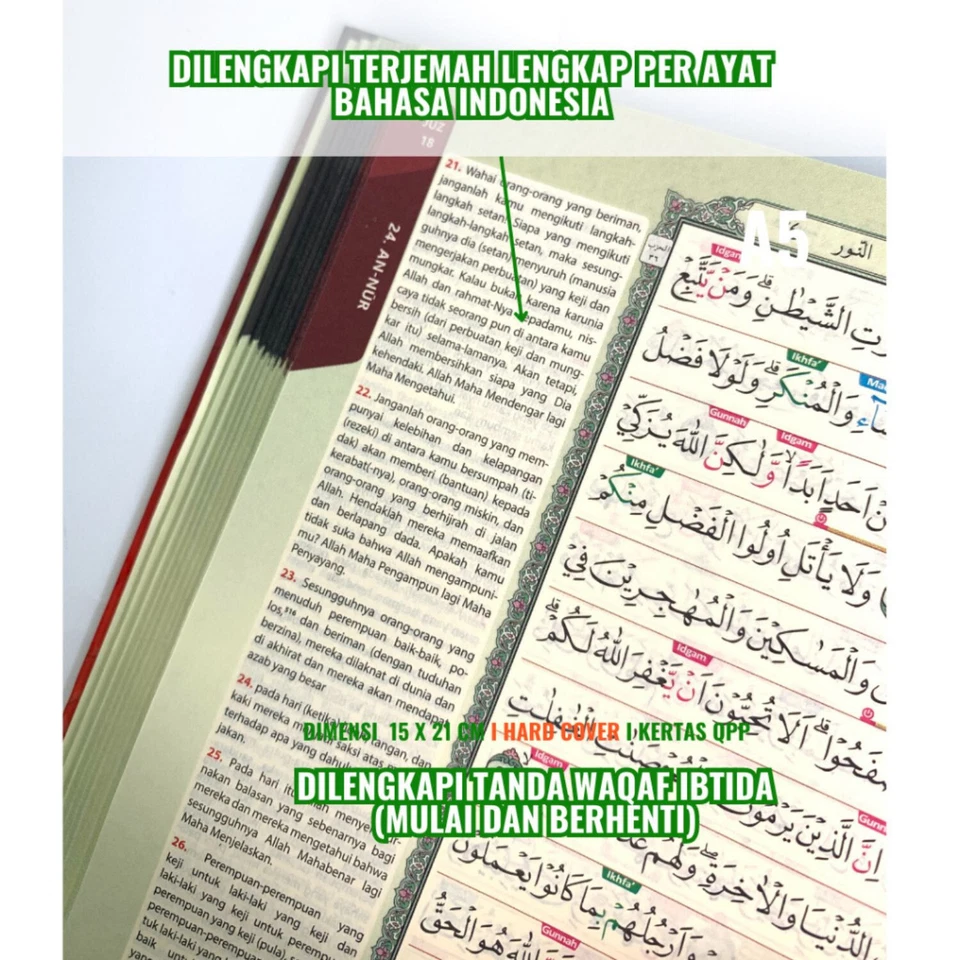 DILENGKAPI TERJEMAH LENGKAP PER AYAT
BAHASA INDONESIA
JUZ
18
24. AN-NŪR
21. Wahai orang-orang yang beriman,
janganlah kamu mengikuti langkah-
langkah setan! Siapa yang mengikuti
langkah-langkah setan, maka sesung-
guhnya dia (setan) menyuruh (manusia
mengerjakan perbuatan) yang keji dan
mungkar. Kalau bukan karena karunia
Allah dan rahmat-Nya kepadamu, nis-
caya tidak seorang pun di antara kamu
bersih (dari perbuatan keji dan mung-
kar itu) selama-lamanya. Akan tetapi,
Allah membersihkan siapa yang Dia
kehendaki. Allah Maha Mendengar lagi
Maha Mengetahui.
22. Janganlah orang-orang yang mem-
punyai kelebihan dan kelapangan
(rezeki) di antara kamu bersumpah (ti-
dak) akan memberi (bantuan) kepada
kerabat(-nya), orang-orang miskin, dan
orang-orang yang berhijrah di jalan
Allah. Hendaklah mereka memaafkan
dan berlapang dada. Apakah kamu
tidak suka bahwa Allah mengampuni-
mu? Allah Maha Pengampun lagi Maha
Penyayang.
23. Sesungguhnya orang-orang yang
menuduh perempuan baik-baik, po-
los,⁵¹⁶ dan beriman (dengan tuduhan
berzina), mereka dilaknat di dunia dan
di akhirat dan mereka akan mendapat
azab yang besar
24. pada hari (ketika)
kaki mereka saksi atas
terhadap apa yang dahulu
jakan.
25. Pada hari itu Allah menyem-
nakan balasan yang sebenarnya bagi
mereka dan mereka mengetahui bahwa
sesungguhnya Allah Mahabenar lagi
Maha Menjelaskan.
26. Perempuan-perempuan yang
keji untuk laki-laki yang keji dan
laki-laki yang keji untuk perempuan-
perempuan yang keji (pula),
perempuan-perempuan
tuk laki-laki yang
baik
A5
النور
Idgam
الشَّيْطٰنِۗ وَمَنْ يَّتَّبِعْ
Ikhfa'
وَالْمُنْكَرِۗ وَلَوْلَا فَضْلُ
Gunnah
Idgam
اَحَدٍ اَبَدًاۙ وَّلٰكِنَّ اللّٰهَ يُزَكِّيْ
Ikhfa'
وَلَا يَأْتَلِ اُولُوا الْفَضْلِ مِنْكُمْ
وَالْمَسٰكِيْنَ وَالْمُهٰجِرِيْنَ فِيْ
Idgam
اَلَا تُحِبُّوْنَ اَنْ يَّغْفِرَ اللّٰهُ لَكُمْۗ
DIMENSI 15 X 21 CM I HARD COVER I KERTAS QPP
Idgam
DILENGKAPI TANDA WAQAF IBTIDA
(MULAI DAN BERHENTI)
اِنَّ الَّذِيْنَ يَرْمُوْنَ
الدُّنْيَا وَالْاٰخِرَةِۖ وَلَهُمْ
Ikhfa'
وَاَرْجُلُهُمْ بِمَا كَانُوْا يَعْمَلُوْنَ
Gunnah
هُوَ الْحَقُّ